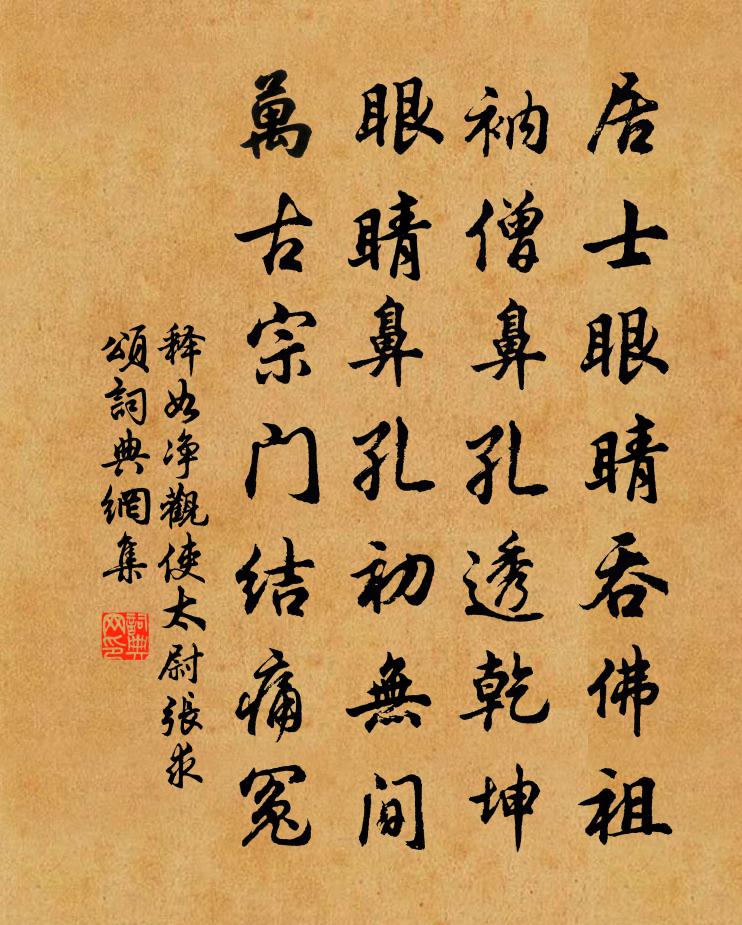 居士眼睛吞佛祖
衲僧鼻孔透乾坤
眼睛鼻孔初無間
萬古宗门结痛冤
释如净觀使太尉張求
頌詞典網集
詞典网印